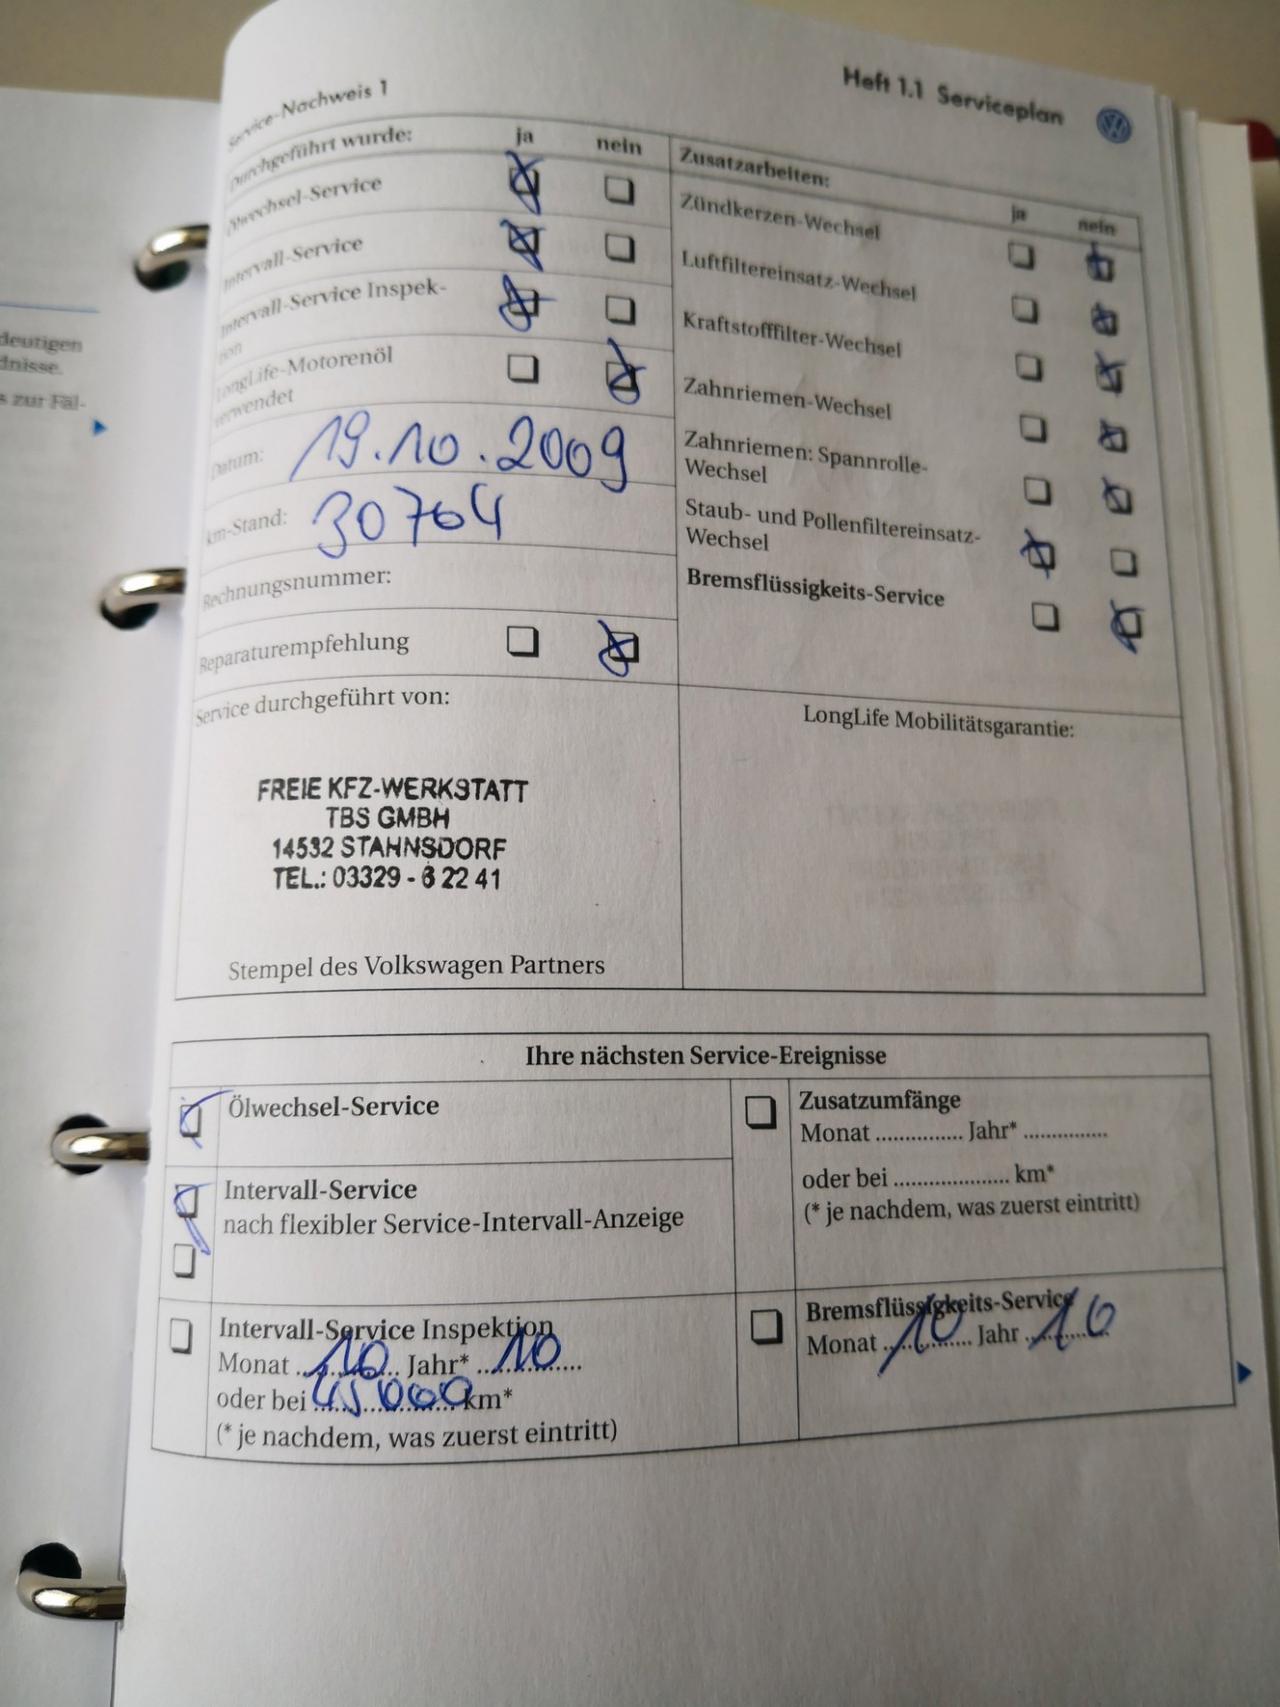 Service-Nachweis 1
Heft 1.1 Serviceplan
Durchgeführt wurde: ja nein
Ölwechsel-Service
Intervall-Service
Intervall-Service Inspek-
tion
LongLife-Motorenöl
verwendet
Datum: 19.10.2009
km-Stand: 30764
Rechnungsnummer:
Reparaturempfehlung
Zusatzarbeiten:
ja nein
Zündkerzen-Wechsel
Luftfiltereinsatz-Wechsel
Kraftstofffilter-Wechsel
Zahnriemen-Wechsel
Zahnriemen: Spannrolle-
Wechsel
Staub- und Pollenfiltereinsatz-
Wechsel
Bremsflüssigkeits-Service
Service durchgeführt von:
FREIE KFZ-WERKSTATT
TBS GMBH
14532 STAHNSDORF
TEL.: 03329 - 6 22 41
Stempel des Volkswagen Partners
LongLife Mobilitätsgarantie:
Ihre nächsten Service-Ereignisse
Ölwechsel-Service
Intervall-Service
nach flexibler Service-Intervall-Anzeige
Intervall-Service Inspektion
Monat 10 Jahr* 10
oder bei 45000 km*
(* je nachdem, was zuerst eintritt)
Zusatzumfänge
Monat ............... Jahr* ...............
oder bei ..................... km*
(* je nachdem, was zuerst eintritt)
Bremsflüssigkeits-Service
Monat 10 Jahr 10
deutigen
dnisse.
s zur Fäl-